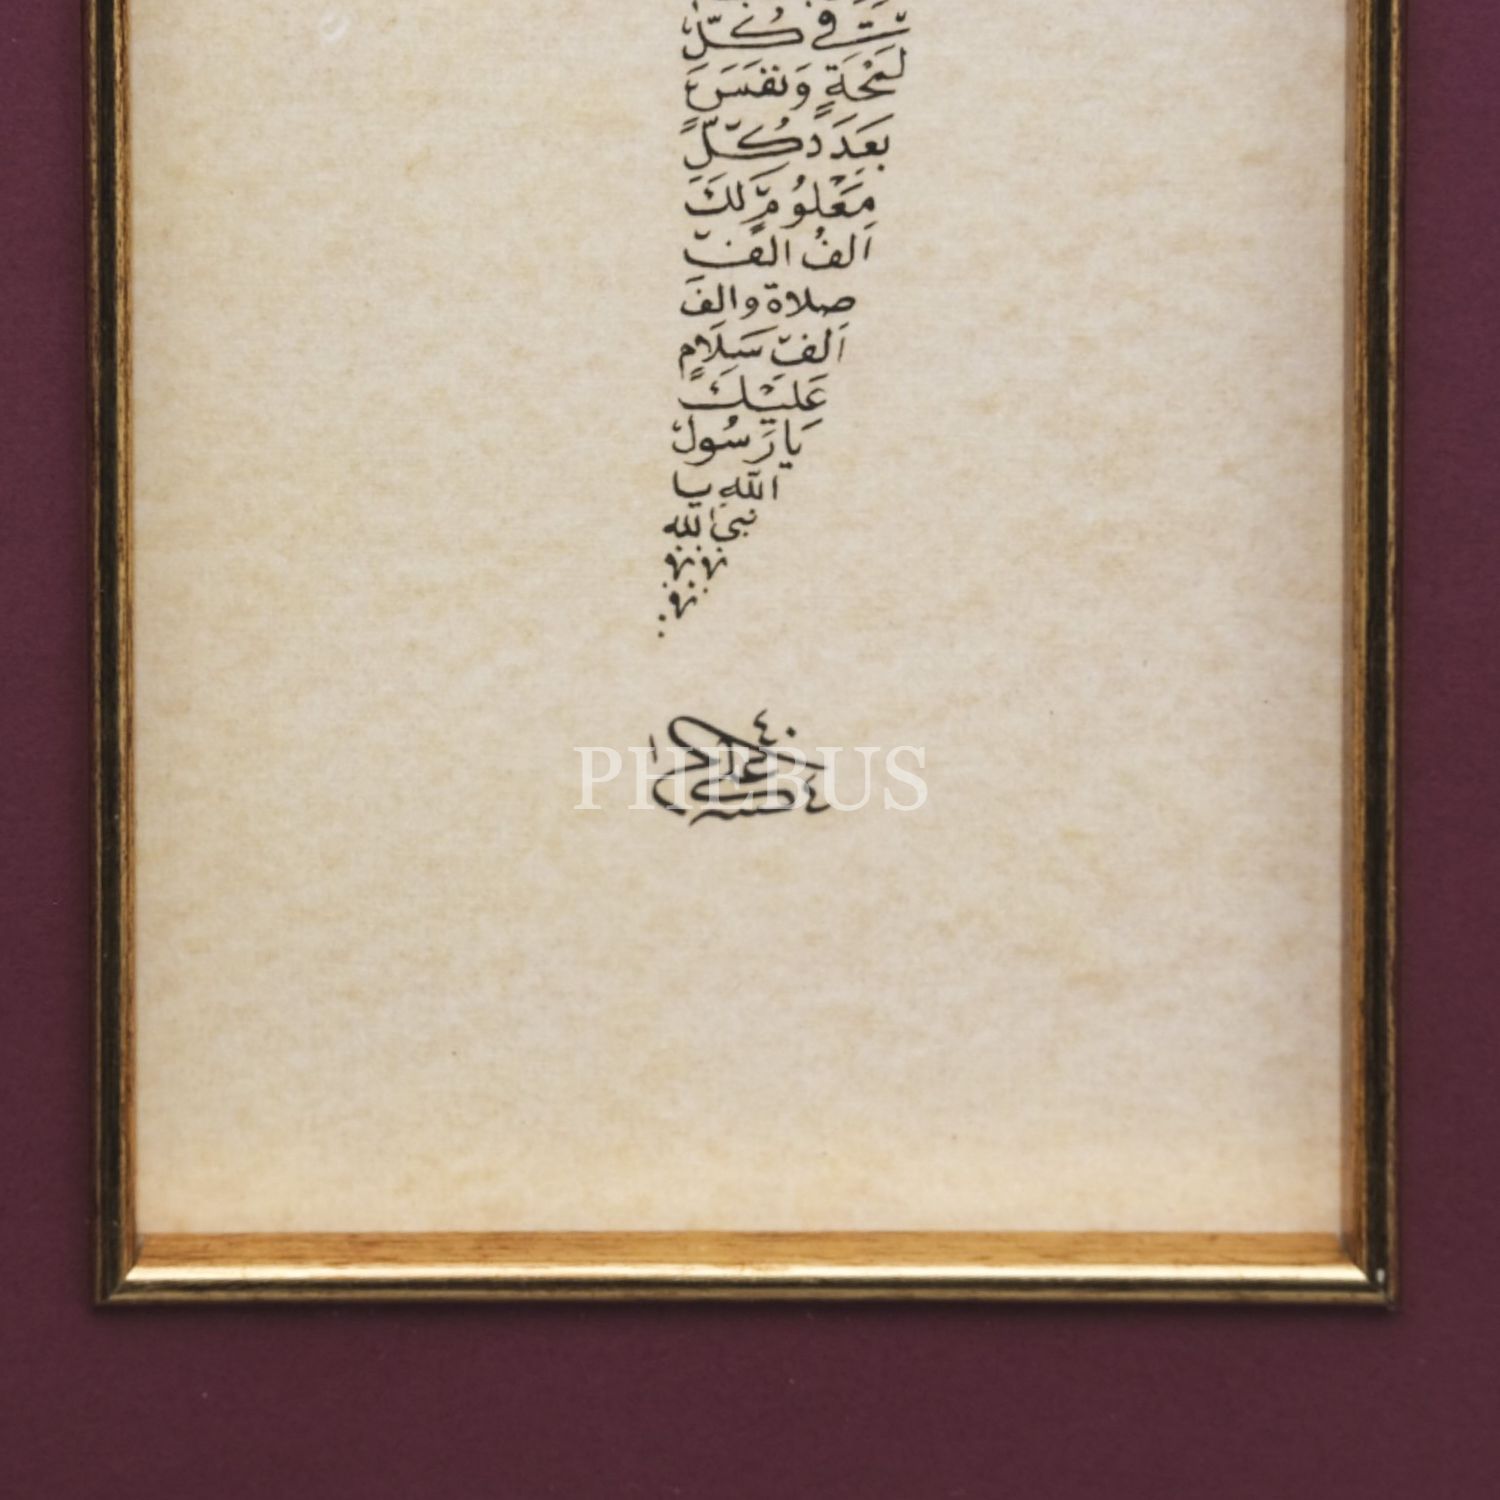 في كُلِّ
لَمْحَةٍ وَنَفَسٍ
بِعَدَدِ كُلِّ
مَعْلُومٍ لَكَ
اَلْفُ اَلْفِ
صلاة والف
اَلْفِ سَلَامٍ
عَلَيْكَ
يَا رَسُولَ
اللّٰهِ يا
نبي الله
PHEBUS